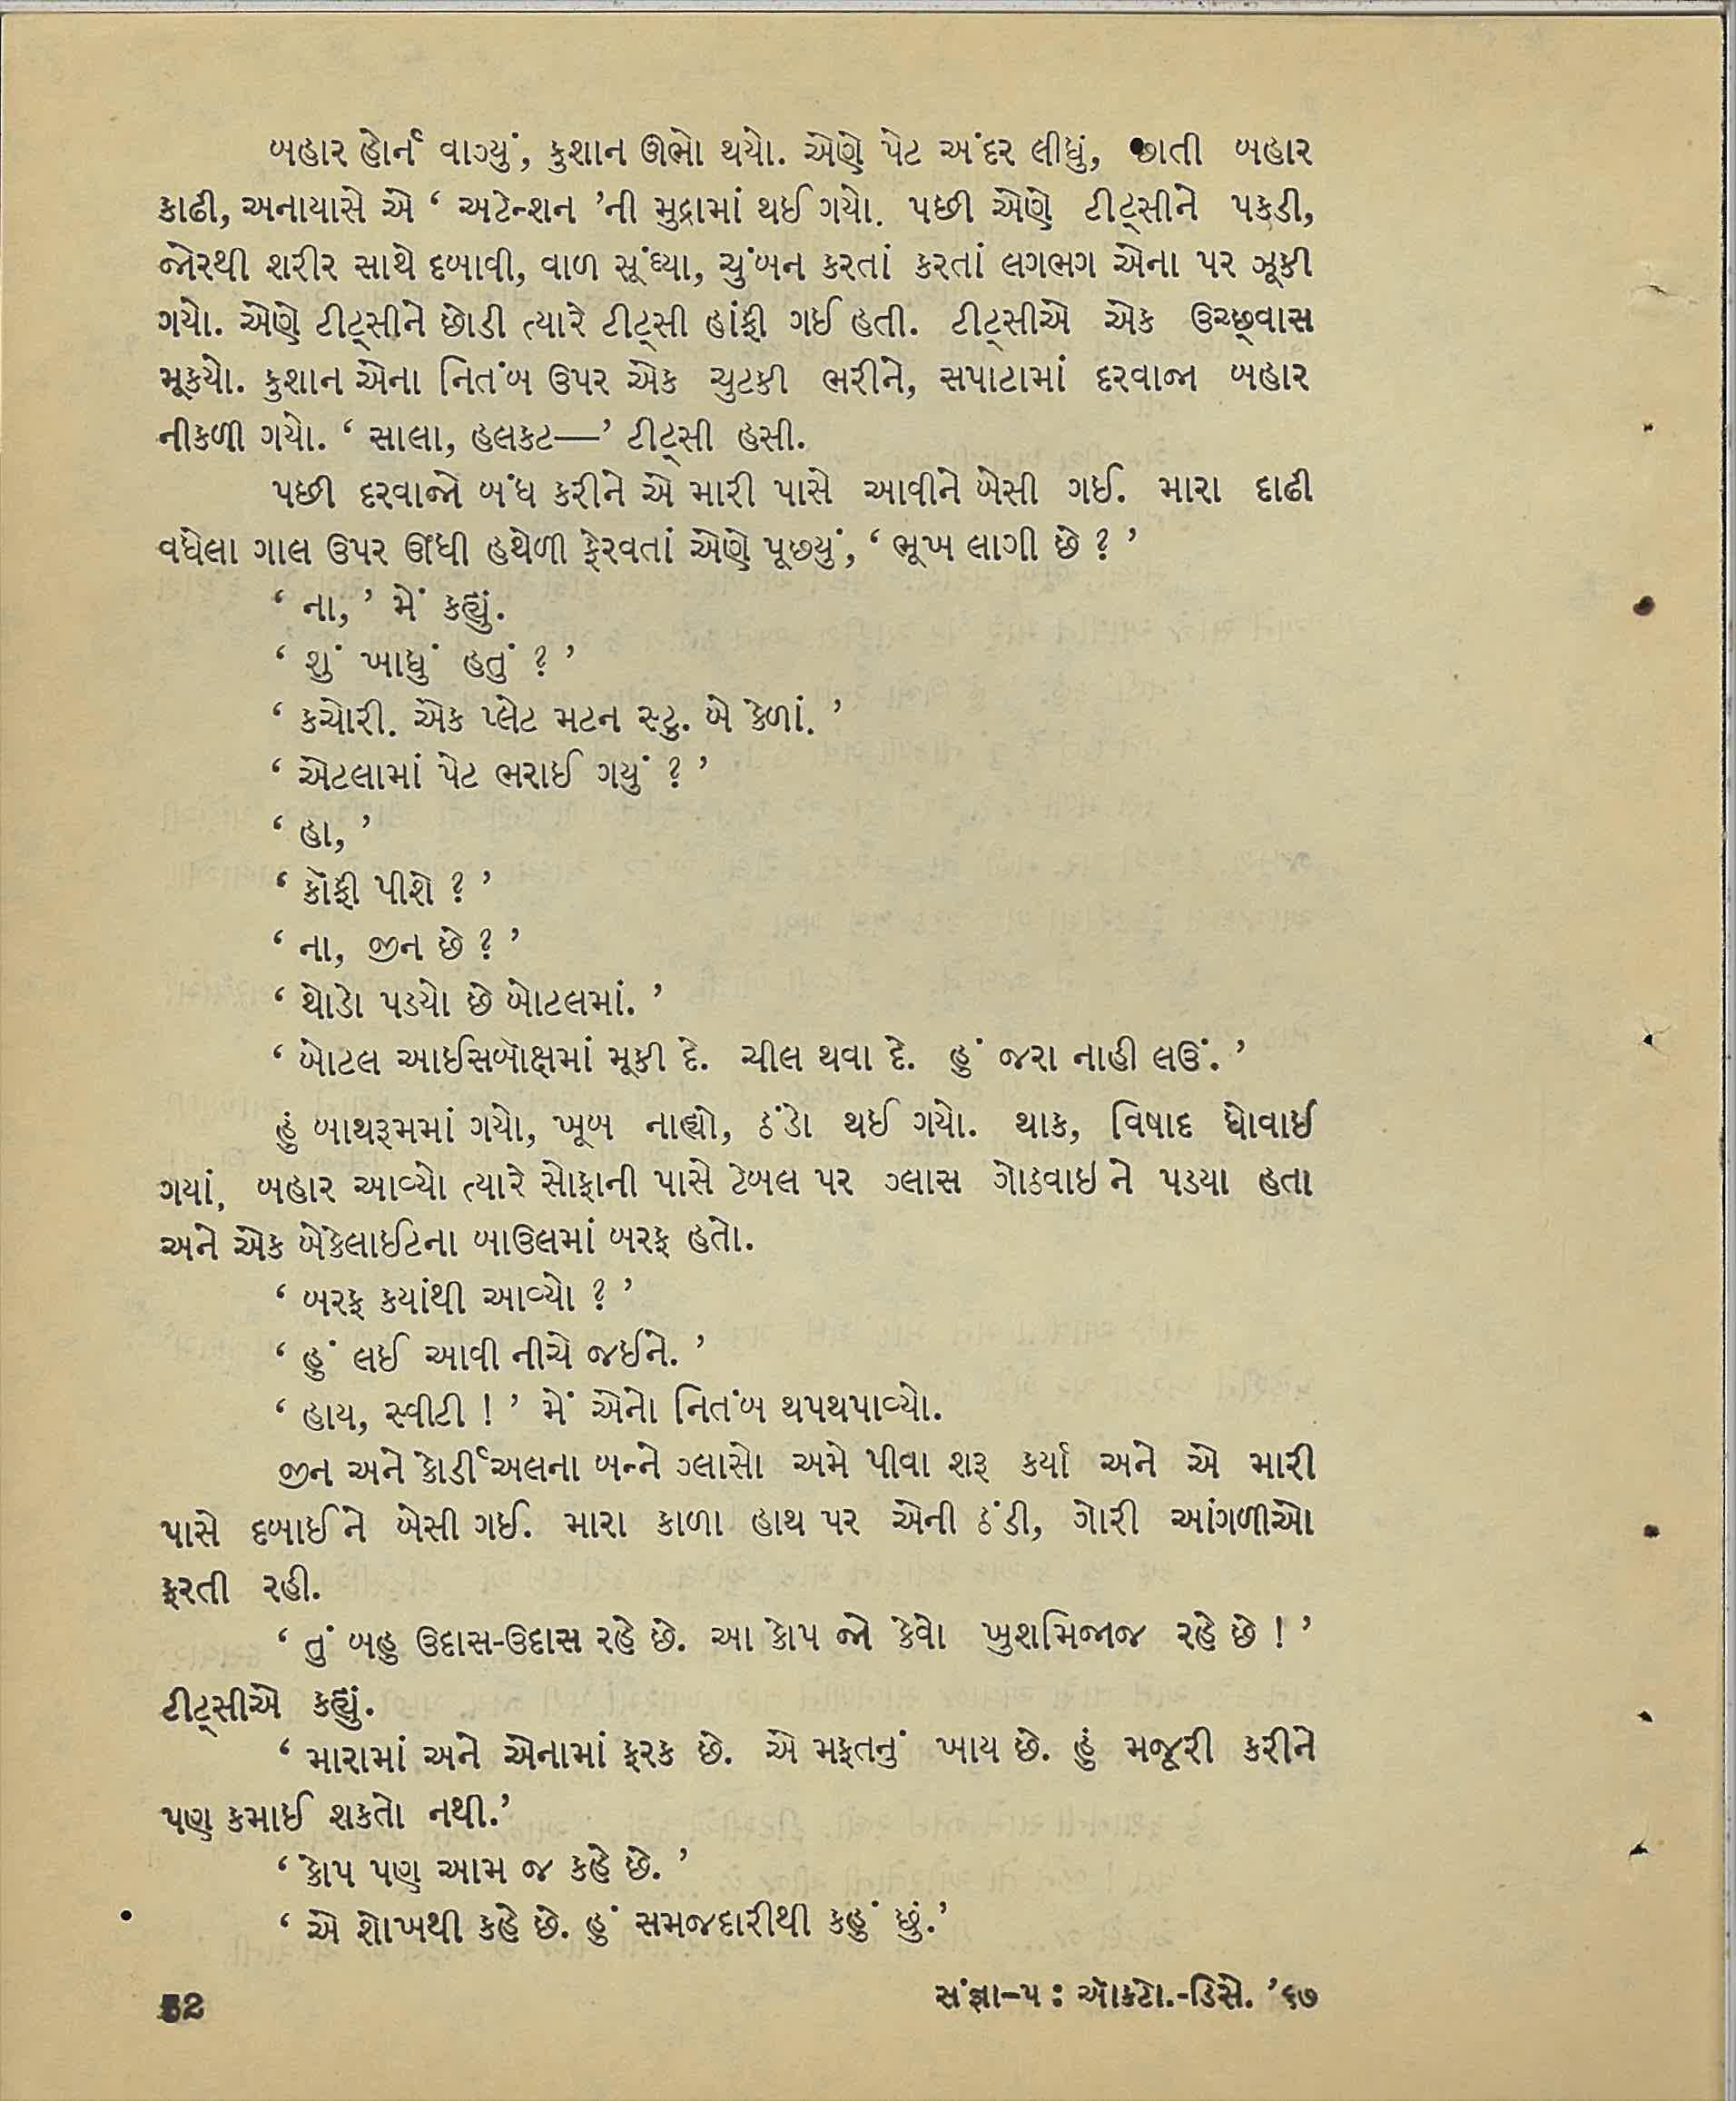 બહાર હોર્ન વાગ્યું, કુશાન ઊભો થયો. એણે પેટ અંદર લીધું, છાતી બહાર
કાઢી, અનાયાસે એ ‘ અટેન્શન ’ની મુદ્રામાં થઈ ગયો. પછી એણે ટીટ્સીને પકડી,
જોરથી શરીર સાથે દબાવી, વાળ સૂંઘ્યા, ચુંબન કરતાં કરતાં લગભગ એના પર ઝૂકી
ગયો. એણે ટીટ્સીને છોડી ત્યારે ટીટ્સી હાંફી ગઈ હતી. ટીટ્સીએ એક ઉચ્છ્વાસ
મૂકયો. કુશાન એના નિતંબ ઉપર એક ચુટકી ભરીને, સપાટામાં દરવાજા બહાર
નીકળી ગયો. ‘ સાલા, હલકટ—’ ટીટ્સી હસી.
પછી દરવાજો બંધ કરીને એ મારી પાસે આવીને બેસી ગઈ. મારા દાઢી
વધેલા ગાલ ઉપર ઊંધી હથેળી ફેરવતાં એણે પૂછયું, ‘ ભૂખ લાગી છે ? ’
‘ ના, ’ મેં કહ્યું.
‘ શું ખાધું હતું ? ’
‘ કચોરી. એક પ્લેટ મટન સ્ટુ. બે કેળાં. ’
‘ એટલામાં પેટ ભરાઈ ગયું ? ’
‘ હા, ’
‘ કૉફી પીશે ? ’
‘ ના, જીન છે ? ’
‘ થોડો પડયો છે બોટલમાં. ’
‘ બોટલ આઈસબૉક્ષમાં મૂકી દે. ચીલ થવા દે. હું જરા નાહી લઉં. ’
હું બાથરૂમમાં ગયો, ખૂબ નાહ્યો, ઠંડો થઈ ગયો. થાક, વિષાદ ધોવાઈ
ગયાં, બહાર આવ્યો ત્યારે સોફાની પાસે ટેબલ પર ગ્લાસ ગોઠવાઇને પડયા હતા
અને એક બેકેલાઈટના બાઉલમાં બરફ હતો.
‘ બરફ કયાંથી આવ્યો ? ’
‘ હું લઈ આવી નીચે જઈને. ’
‘ હાય, સ્વીટી ! ’ મેં એનો નિતંબ થપથપાવ્યો.
જીન અને કોર્ડીઅલના બન્ને ગ્લાસો અમે પીવા શરૂ કર્યા અને એ મારી
પાસે દબાઈને બેસી ગઈ. મારા કાળા હાથ પર એની ઠંડી, ગોરી આંગળીઓ
ફરતી રહી.
‘ તું બહુ ઉદાસ-ઉદાસ રહે છે. આ કોપ જો કેવો ખુશમિજાજ રહે છે ! ’
ટીટ્સીએ કહ્યું.
‘ મારામાં અને એનામાં ફરક છે. એ મફતનું ખાય છે. હું મજૂરી કરીને
પણ કમાઈ શકતો નથી.’
‘ કોપ પણ આમ જ કહે છે. ’
‘ એ શોખથી કહે છે. હું સમજદારીથી કહું છું.’
52
સંજ્ઞા-૫ : ઑકટો.-ડિસે. ’૬૭